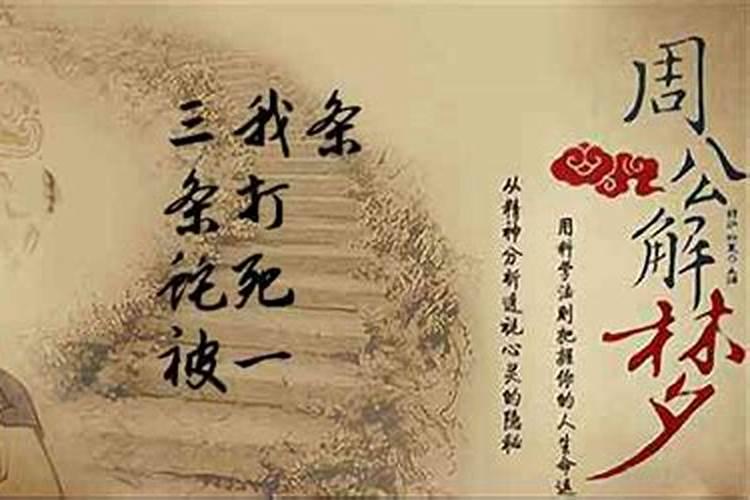 周公解梦
用科学法则把握你的人生命运
从精神分析透视心灵的隐秘
三条蛇被
我打死一
条